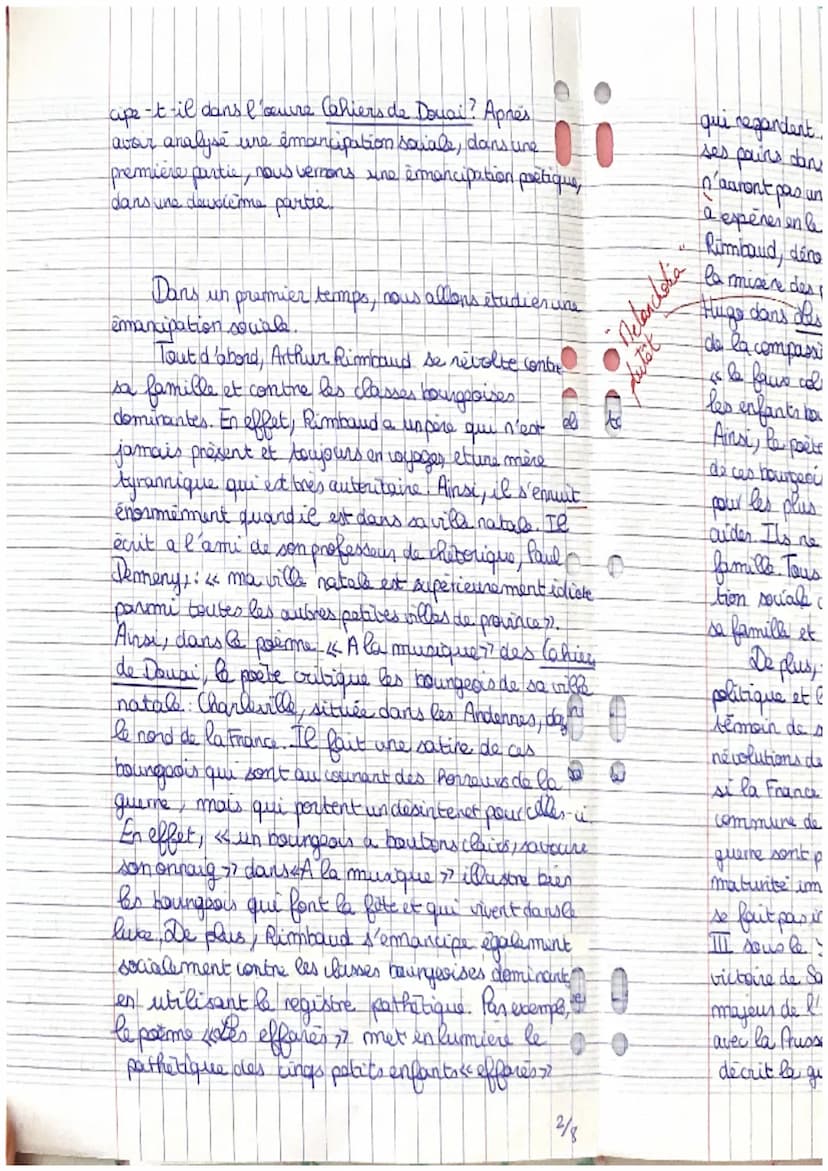 cipe-t-il dans l'œuvre Cahiers de Douai? Après
avoir analysé une émancipation sociale, dans une
première partie, nous verrons une émancipation poétique,
dans une deuxième partie.
Dans un premier temps, nous allons étudier une
émancipation sociale.
Tout d'abord, Arthur Rimbaud se révolte contre
sa famille et contre les classes bourgeoises
dominantes. En effet, Rimbaud a un père qui n'est
jamais présent et toujours en voyages, et une mère
tyrannique qui est très autoritaire. Ainsi, il s'ennuit
énormément quand il est dans sa ville natale. Il
écrit a l'ami de son professeur de rhétorique, Paul
Demeny,: « ma ville natale est supérieurement idiote
parmi toutes les autres petites villes de province ».
Ainsi, dans le poème « A la musique » des Cahiers
de Douai, le poète critique les bourgeois de sa ville
natale: Charleville, située dans les Ardennes, dans
le nord de la France. Il fait une satire de ces
bourgeois qui sont au courant des horreurs de la
guerre, mais qui portent un désinteret pour celles-ci.
En effet, « un bourgeois à boutons clairs, savoure
son onnaig » dans « A la musique » illustre bien
les bourgeois qui font la fête et qui vivent dans le
luxe. De plus, Rimbaud s'émancipe également
socialement contre les classes bourgeoises dominant
en utilisant le registre pathétique. Par exemple,
le poème « Les effarés » met en lumière le
pathétique des cinqs petits enfants « effarés »
2/8
"Melancholia"
plutôt
qui regardent
ses pains dans
n'auront pas un
à espérer en la
Rimbaud, déno
la misère des
Hugo dans Les
de la compassi
« la fauve col
les enfants ba
Ainsi, le poète
de ces bourgeoi
pour les plus
aider. Ils ne
famille. Tous
tion sociale
sa famille et
De plus,
politique et
témoin de
révolutions de
si la France
commune de
guerre sont p
maturité im
se fait pas
III sous le
victoire de Sa
majeurs de l'
avec la Prusse
décrit la gu